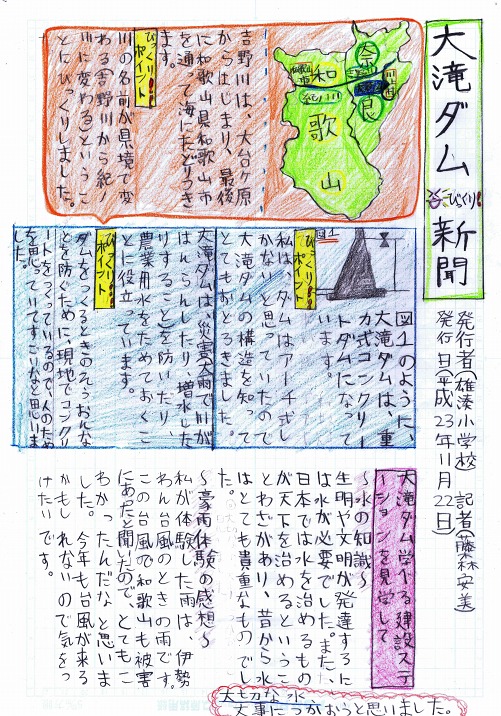 大滝ダム
びっくり!
新聞
発行者(雄湊小学校 記者(藤林安美)
発行日(平成23年11月22日)
奈良
和歌山
紀ノ川
吉野川は、大台ケ原
からはじまり、最後
に和歌山県和歌山市
を通って海にたどりつき
ます。
びっくりポイント
川の名前が県境で変
わる(吉野川から紀ノ
川に変わる)というこ
とにびっくりしました。
図1
図1のように、
大滝ダムは、重
力式コンクリー
トダムになって
います。
びっくりポイント
私は、ダムはアーチ式し
かないと思っていたので
大滝ダムの構造を知って
とてもおどろきました。
大滝ダムは、災害(大雨で川が
はんらんしたり、増水した
りすること)を防いだり、
農業用水をためておくこ
とに役立っています。
びっくりポイント
ダムをつくるときのそうおんな
どを防ぐために、現地でコンクリ
ートをつくっているので、人のため
を思っていてすごいなと思いま
した。
大滝ダム学べる建設ステ
ーションを見学して
〜水の知識〜
生明や文明が発達するに
は水が必要でした。また、
日本では水を治めるもの
が天下を治めるというこ
とわざがあり、昔から水
はとても貴重なものでし
た。
〜豪雨体験の感想〜
私が体験した雨は、伊勢
わん台風のときの雨です。
この台風で和歌山も被害
にあったと聞いたので、とてもこ
わかったんだなと思いま
した。今年も台風が来る
かもしれないので気をつ
けたいです。
大切な水、
大事につかおうと思いました。